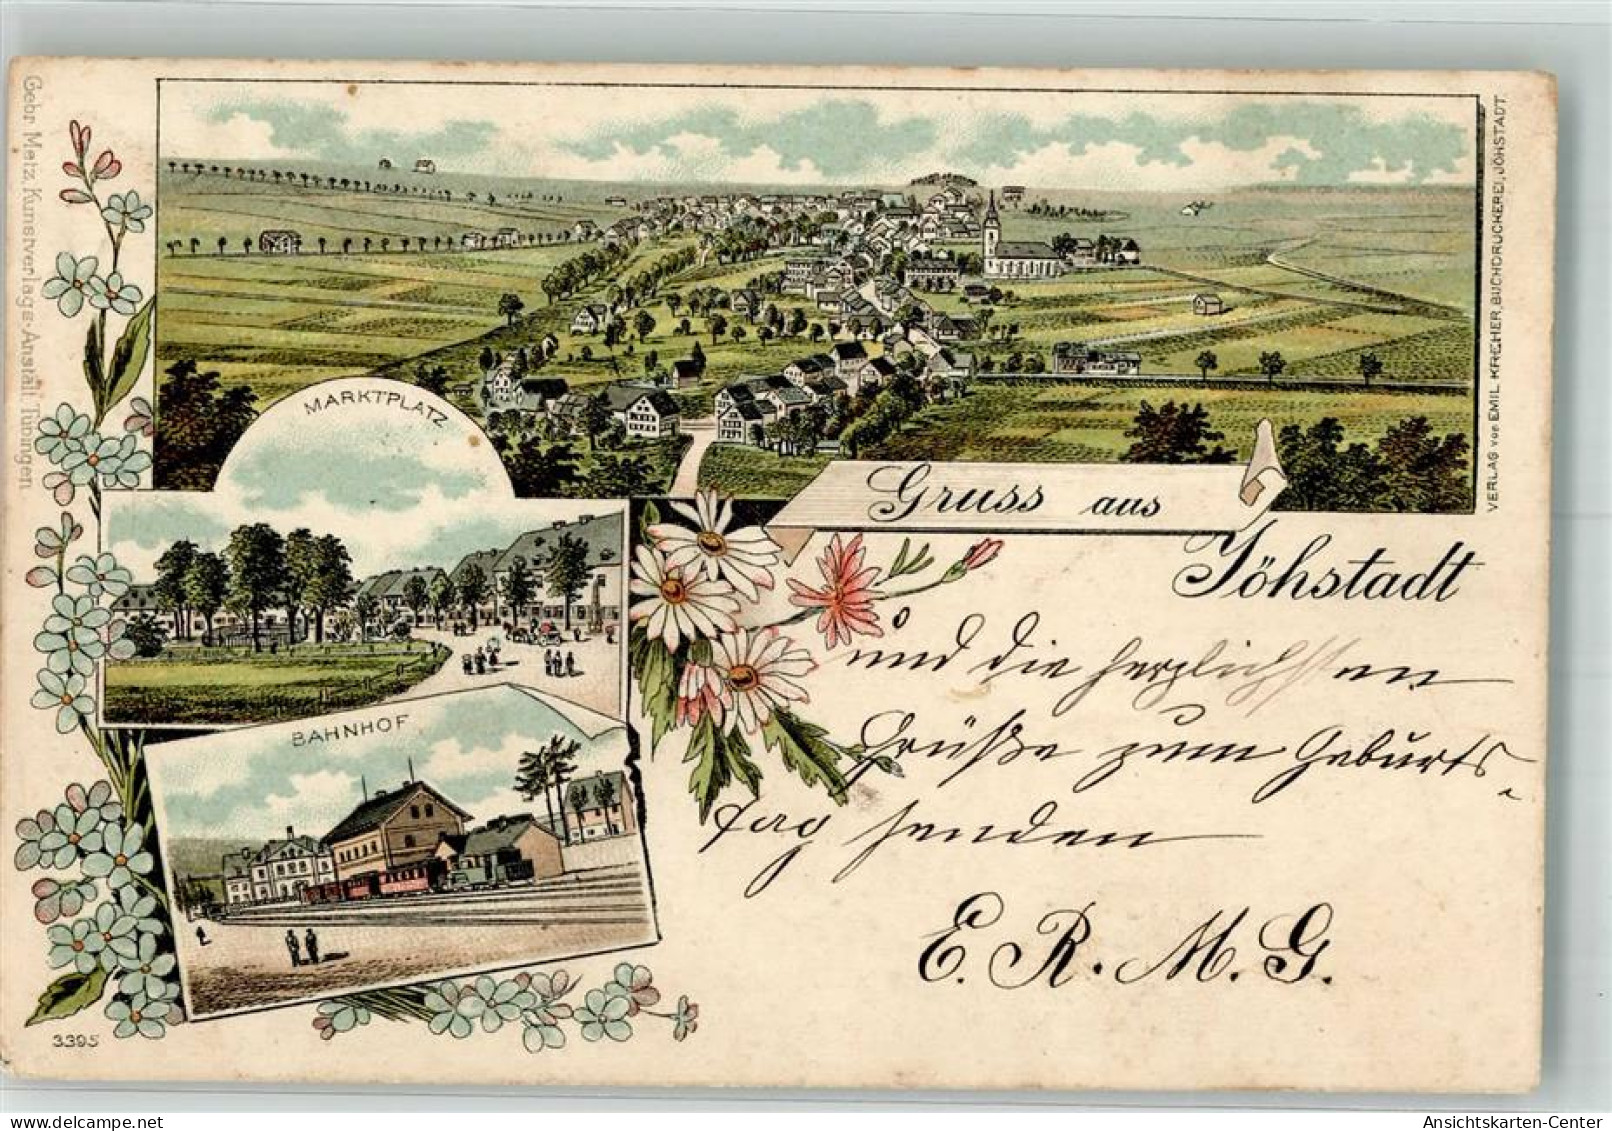 Gebr. Metz, Kunstverlags-Anstalt, Tübingen.
VERLAG von EMIL KREHER, BUCHDRUCKEREI, JÖHSTADT.
MARKTPLATZ
BAHNHOF
Gruss aus
Jöhstadt
und die herzlichsten
Grüße zum Geburts-
tag senden
E. R. M. G.
3395
Ansichtskarten-Center